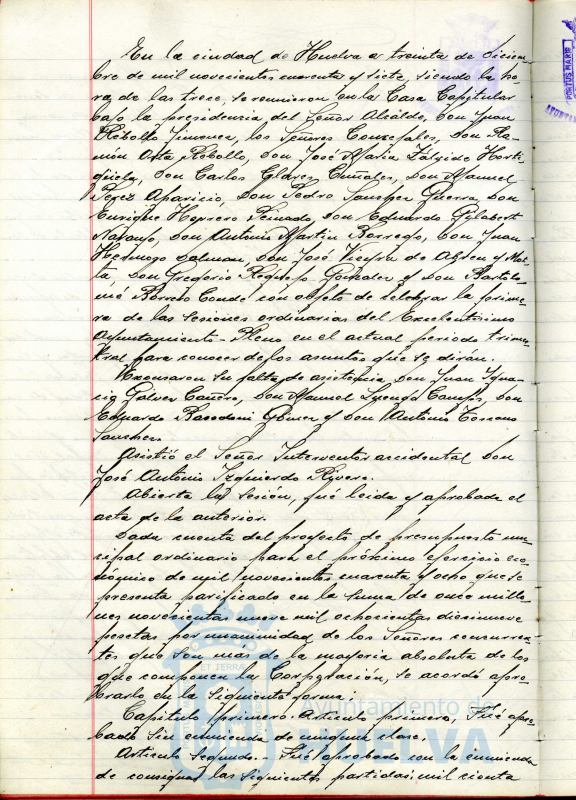 En la ciudad de Huelva a treinta de diciem-
bre de mil novecientos cuarenta y siete, siendo la ho-
ra de las trece, se reunieron en la Casa Capitular
bajo la presidencia del Señor Alcalde, Don Juan
Rebollo Jimenez, los Señores Concejales, Don Ra-
món Orta Rebollo, Don José María Zalvide Horti-
güela, Don Carlos Canales, Don Manuel
Perez Aparicio, Don Pedro Sanchez Guerra, Don
Enrique Herrero Peinado, Don Eduardo Gelabert
Naranjo, Don Antonio Martin Borrego, Don Juan
Hermoso Dalman, Don José Vieyra de Abreu y Mot-
ta, Don Gregorio Gonzalez y Don Bartolo-
mé Borrero Conde con objeto de celebrar la prime-
ra de las sesiones ordinarias del Excelentísimo
Ayuntamiento-Pleno en el actual periodo trimes-
tral para conocer de los asuntos que se dirán.
Excusaron su falta de asistencia, Don Juan Igna-
cio Galvez Cañero, Don Manuel Camps, Don
Eduardo Gómez y Don Antonio Toscano
Sanchez.
Asistió el Señor Interventor accidental Don
José Antonio Izquierdo Rivero.
Abierta la sesión, fué leida y aprobada el
acta de la anterior.
Dada cuenta del proyecto de presupuesto mu-
cipal ordinario para el próximo ejercicio eco-
nómico de mil novecientos cuarenta y ocho que se
presenta parificado en la suma de once millo-
nes novecientas nueve mil ochocientas diecinueve
pesetas por unanimidad de los Señores concurren-
tes que son mas de la mayoria absoluta de los
que componen la Corporación, se acordó apro-
barlo en la siguiente forma:
Capítulo primero. Articulo primero, Fué apro-
bado sin enmienda de ninguna clase.
Articulo segundo.- Fué aprobado con la enmienda
de consignar las siguientes partidas: mil cienta
ET TERRAE
Ayuntamiento de
HUELVA
PORTUS MARIS
AYUNTA